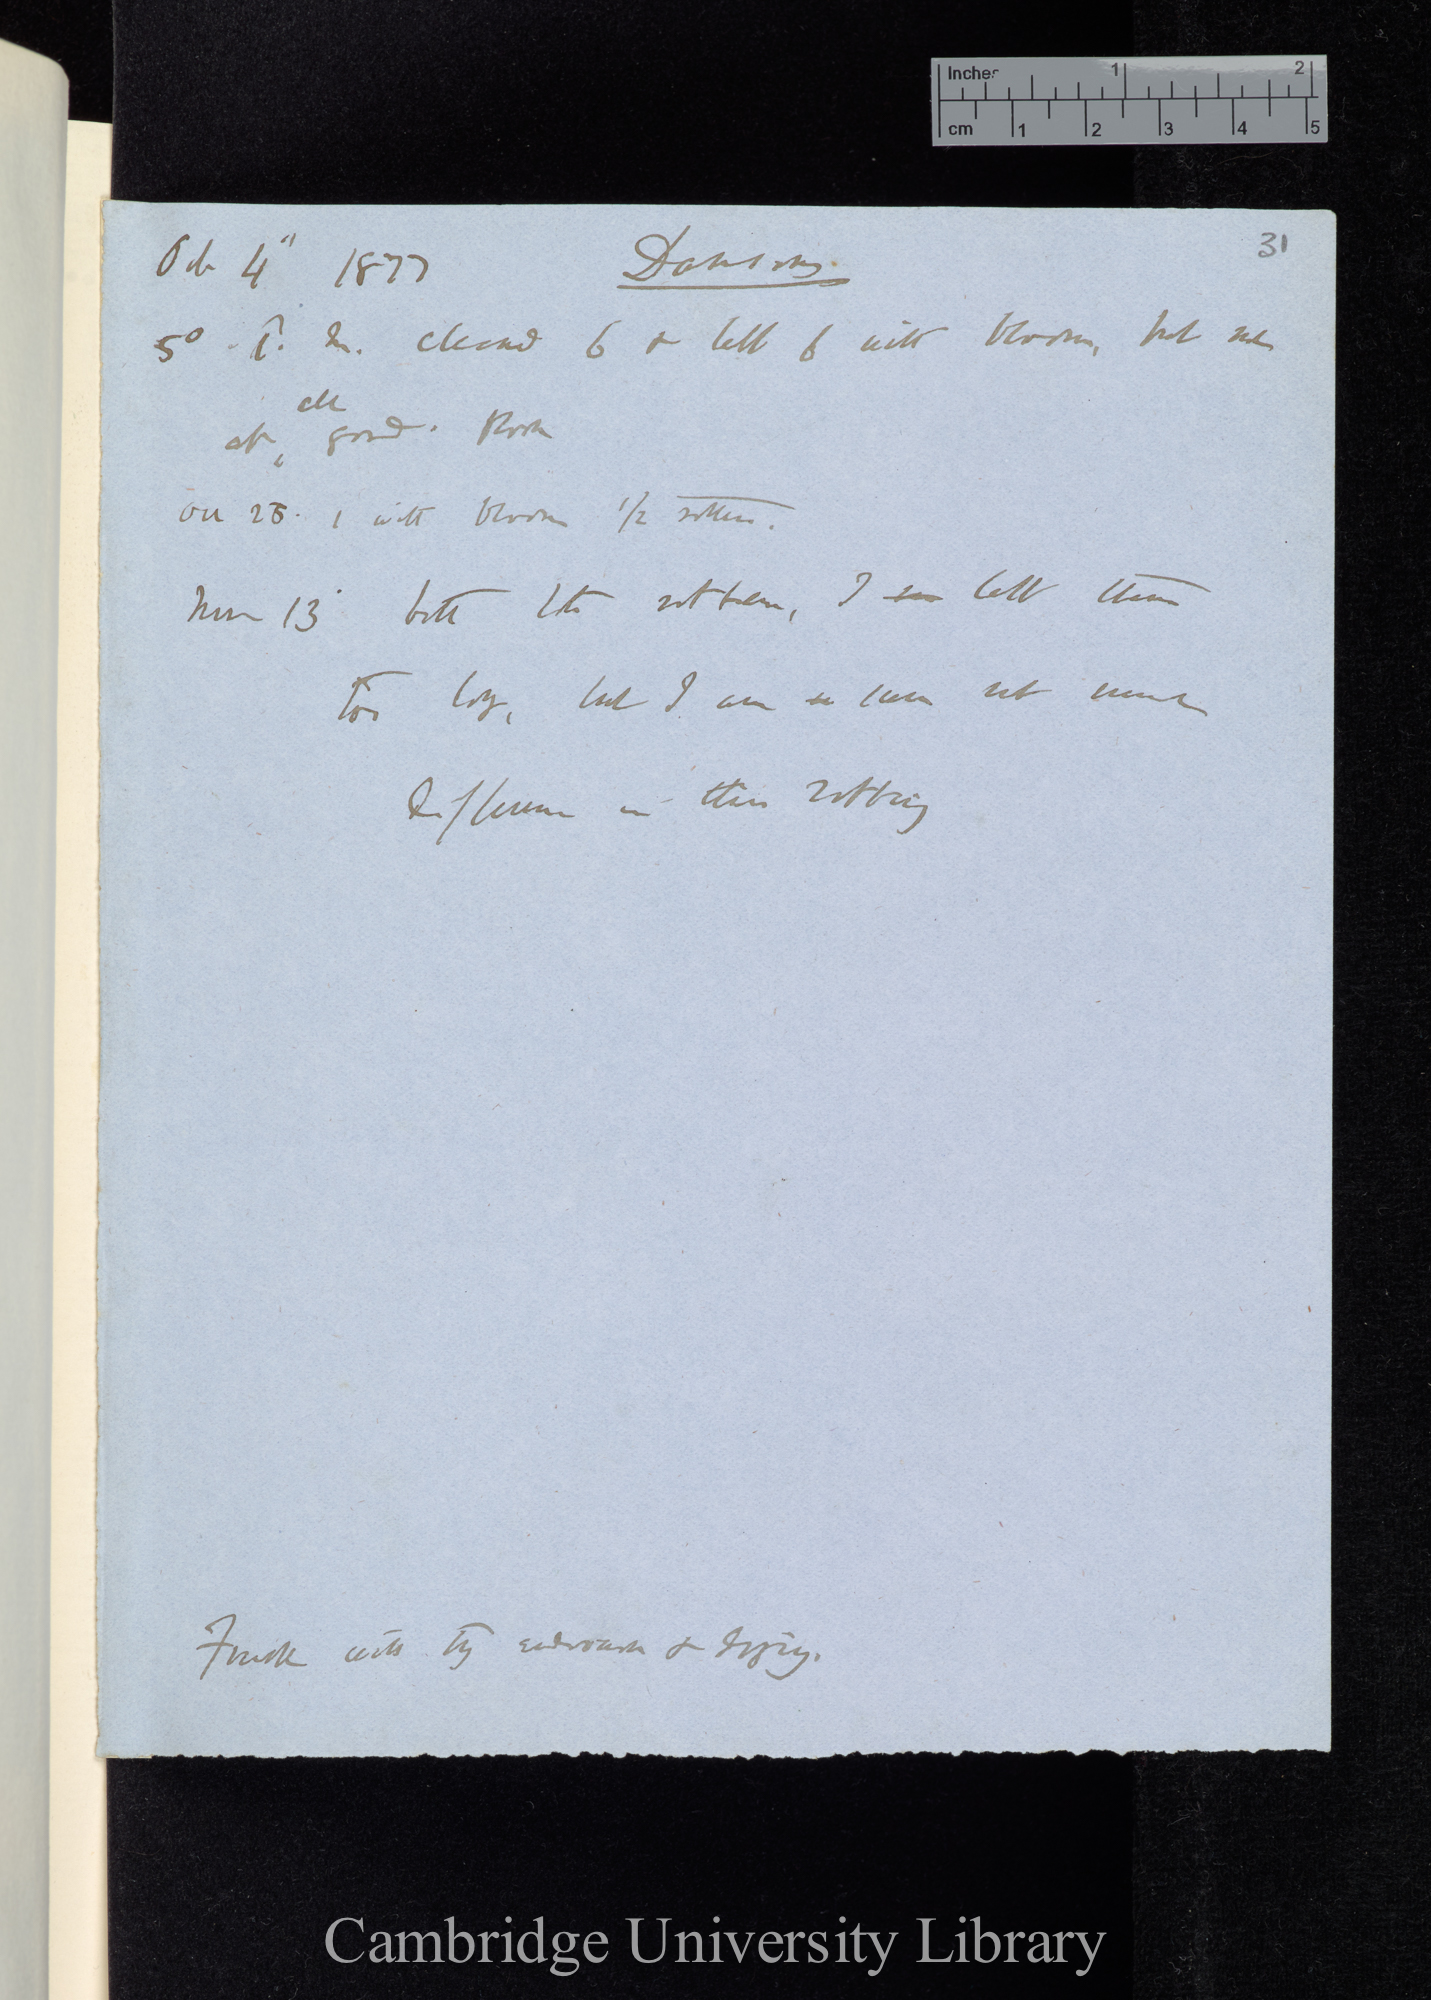 Inches 1 2
cm 1 2 3 4 5
31
Oct 4" 1877 Damsons
5° P. m. cleaned 6 & left 6 with bloom, but not
all
at good. Room
Oct 25. 1 with bloom 1/2 rotten.
Nov 13 both lots rotten, I left them
too long, but I am sure not much
difference in their rotting
Frank with try & drying.
Cambridge University Library